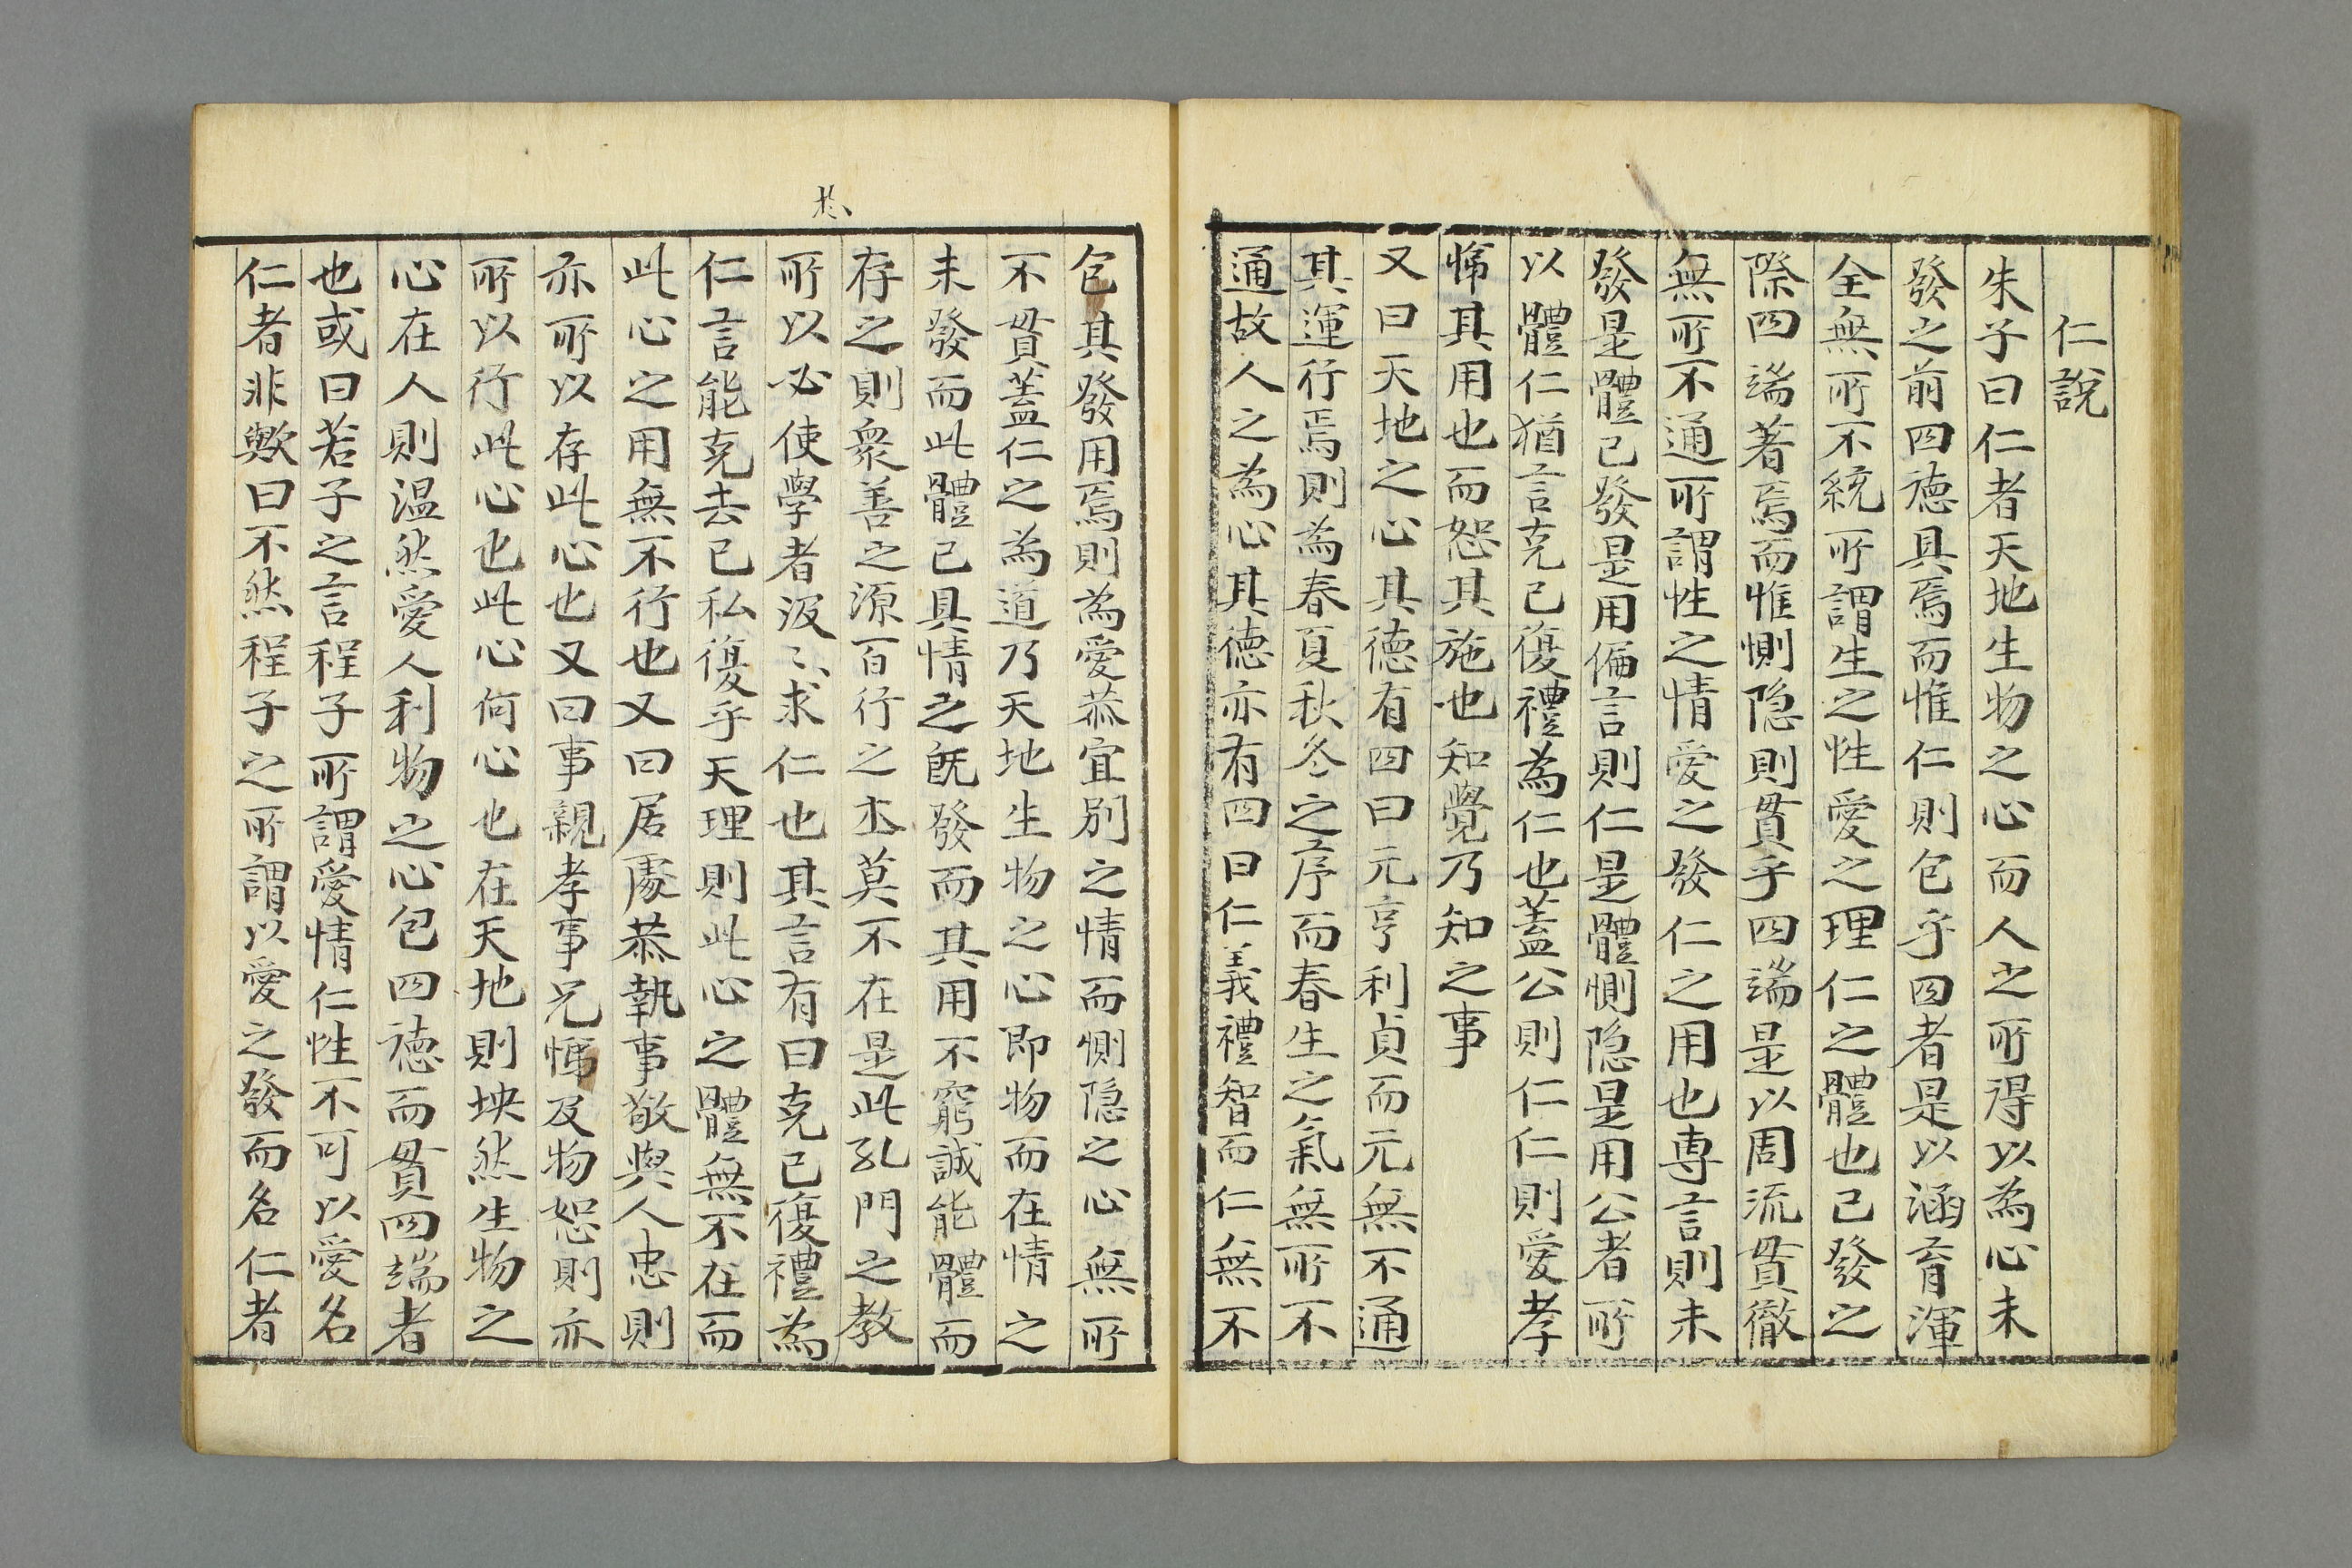 仁說
朱子曰仁者天地生物之心而人之所得以為心未
發之前四德具焉而惟仁則包乎四者是以涵育渾
全無所不統所謂生之性愛之理仁之體也已發之
際四端著焉而惟惻隐則貫乎四端是以周流貫徹
無所不通所謂性之情愛之發仁之用也專言則未
發是體已發是用偏言則仁是體惻隐是用公者所
以體仁猶言克己復禮為仁也蓋公則仁仁則愛孝
悌其用也而恕其施也知覺乃知之事
又曰天地之心其德有四曰元亨利貞而元無不通
其運行焉則為春夏秋冬之序而春生之氣無所不
通故人之為心其德亦有四曰仁義禮智而仁無不
包其發用焉則為愛恭宜別之情而惻隐之心無所
不貫蓋仁之為道乃天地生物之心即物而在情之
未發而此體已具情之既發而其用不窮誠能體而
存之則衆善之源百行之本莫不在是此孔門之教
所以必使學者汲〻求仁也其言有曰克己復禮為
仁言能克去己私復乎天理則此心之體無不在而
此心之用無不行也又曰居處恭執事敬與人忠則
亦所以存此心也又曰事親孝事兄悌及物恕則亦
所以行此心也此心何心也在天地則坱然生物之
心在人則温然愛人利物之心包四德而貫四端者
也或曰若子之言程子所謂愛情仁性不可以愛名
仁者非歟曰不然程子之所謂以愛之發而名仁者